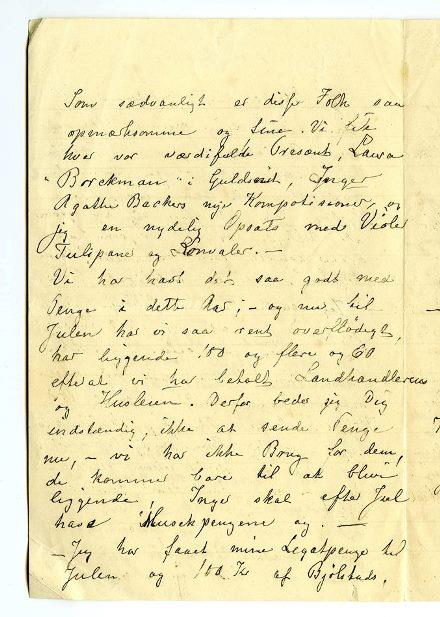 Som sædvanligt er disse Folk saa
opmærksomme og fine. Vi fik
hver vor værdifulde Present, Laura
"Borckman" i Guldsnit, Inger
Agathe Backers nye Kompositioner, og
jeg en nydelig Opsats med Violer
Tulipane og Konvaler. —
Vi har havt det saa godt med
Penge i dette Aar; – og nu til
Julen har vi saa rent overflødigt,
har liggende 100 og flere og 60
efterat vi har betalt Landhandlerens
og Husleien. Derfor beder jeg Dig
indstændig, ikke at sende Penge
nu, – vi har ikke Brug for dem,
de kommer bare til at blive
liggende, Inger skal efter Jul
have Musikpengene og. —
– Jeg har faaet mine Legatpenge til
Julen og 100 Kr af Bjölstads.